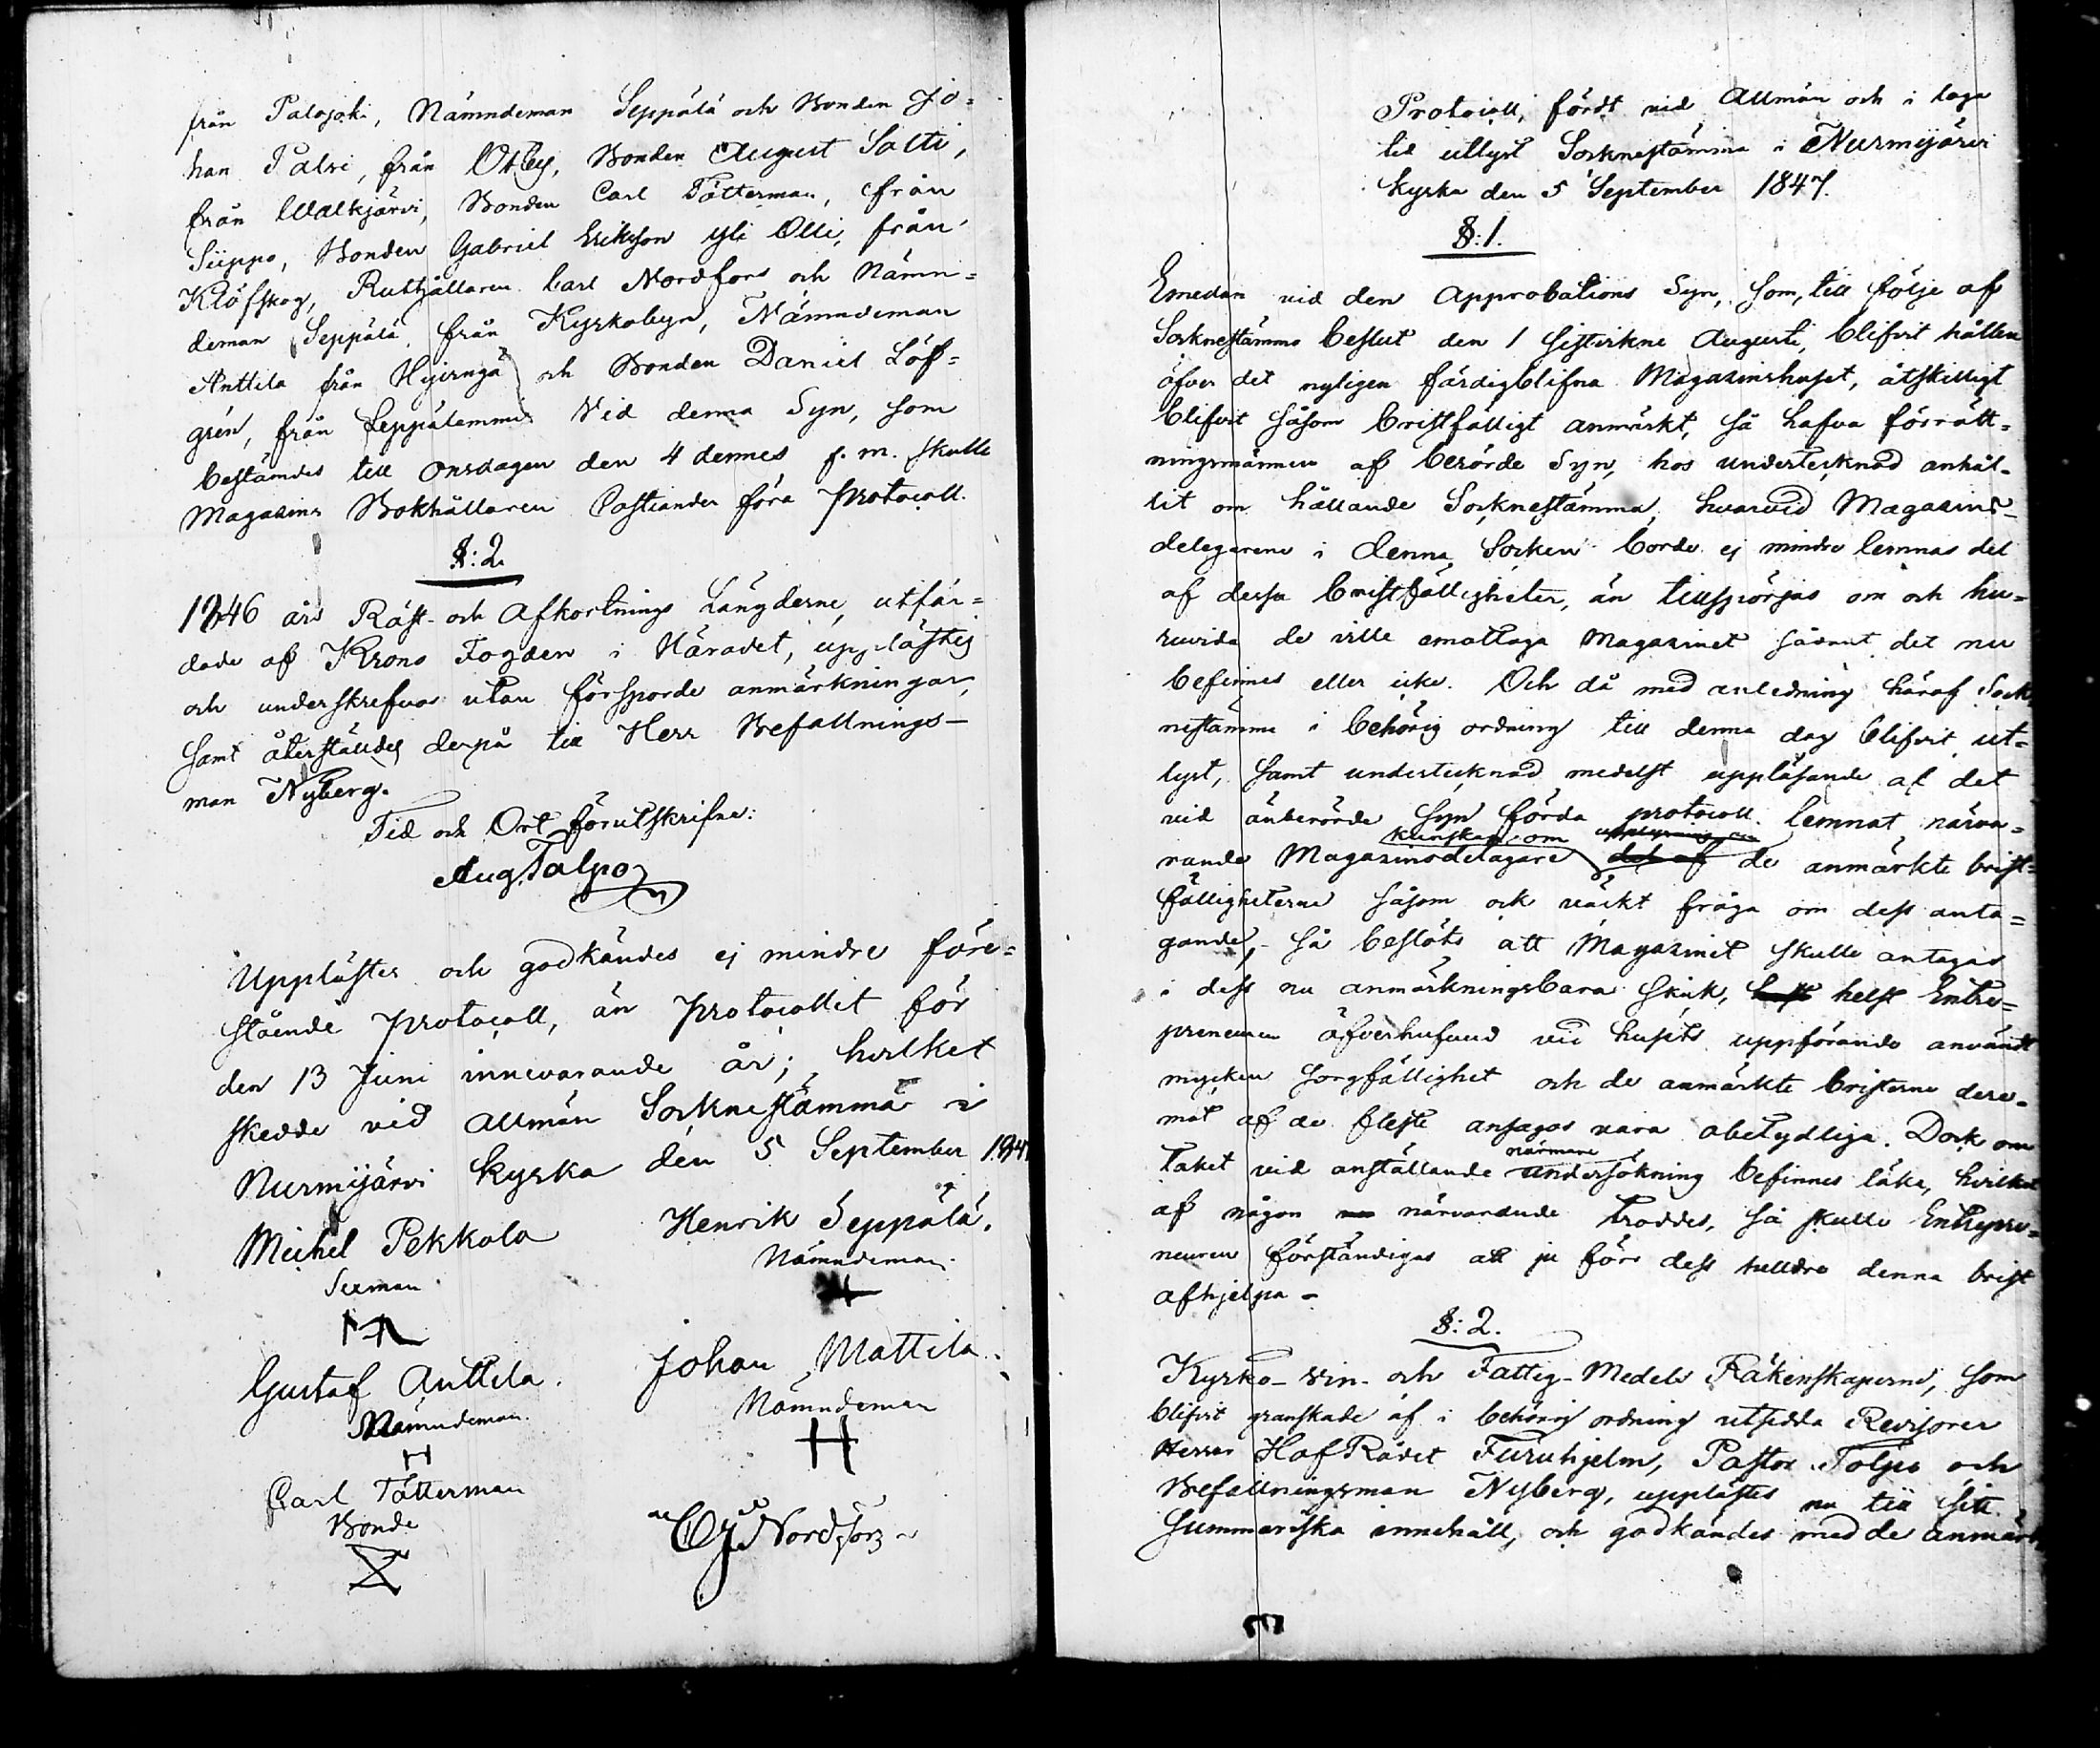 från Palojoki, Nämndeman Seppälä och Bonden Jo=
han Palvi, från Otby, Bonden August Salti,
från Walkjärvi, Bonden Carl Tötterman, från
Siippo, Bonden Gabriel Eriksson yli Olli, från
Klöfskog, Rusthållaren Carl Nordfors och Nämn=
deman Seppälä från Kyrkobyn, Nämndeman
Anttila från Hyvingä och Bonden Daniel Löf=
grén, från Leppälammi. Vid denna Syn, som
bestämdes till Onsdagen den 4 dennes f. m. skulle
Magasins Bokhållaren Castrander föra Protocoll.
§: 2.
1846 års Räst- och Afkortnings Längderne, utfär=
dade af Krono Fogden i Häradet, upplästes
och underskrefvos utan försporde anmärkningar,
samt återställdes derpå till Herr Befallnings-
man Nyberg.
Tid och Ort förutskrifne:
Aug. Talpo
Upplästes och godkändes ej mindre före=
stående Protocoll, än Protocollet för
den 13 Juni innevarande år; hvilket
skedde vid allmän Sockne stämma i
Nurmijärvi Kyrka den 5 September 184
Michel Pekkola
Sexman
Henrik Seppälä.
Nämndeman.
Gustaf Anttila.
Nämndeman.
Johan Mattila.
Nämndeman
H
H
Carl Tötterman
Bonde
CG Nordfors
Protocoll, fördt vid Allmän och i laga
tid utlyst Socknestämma i Nurmijärvi
Kyrka den 5 September 1847.
§: 1.
Emedan vid den Approbations Syn, som, till följe af
Socknestämmo beslut den 1 sistvikne Augusti, blifvit hållen
öfver det nyligen färdigblifna Magasinshuset, åtskilligt
blifvit såsom bristfälligt anmärkt, så hafva förrätt=
ningsmännen af berörde Syn, hos undertecknad anhål-
lit om hållande Socknestämma, hvarvid Magasins-
delegarene i denna Socken borde ej mindre lemnas del
af dessa bristfälligheter, än tillspörjas om och hu=
ruvida de ville emottaga Magasinet sådant det nu
befinnes eller icke. Och då med anledning häraf Sock
nestämma i behörig ordning till denna dag blifvit ut=
lyst, samt undertecknad medelst uppläsande af det
vid änberörde Syn förda protocoll lemnat närva=
kunskap om upplysning om
rande Magasinsdelagare del af de anmärkte brist=
fälligheterne såsom ock väckt fråga om dess anta=
gande, - så beslöts att Magasinet skulle antagas
i dess nu anmärkningsbara skick, helst Entre=
preneuren öfverhufvud vid husets uppförande användt
mycken sorgfällighet och de anmärkte bristerne dere=
mot af de fleste ansågos vara obetydliga. Dock om
närmare
taket vid anställande undersökning befinnes läka, hvilket
af någon närvarande troddes, så skulle Entrepre=
neuren förständigas att ju förr dess hellre denna brist
afhjelpa -
§: 2.
Kyrko- vin- och Fattig-Medels Räkenskaperne, som
blifvit granskade af i behörig ordning utsedda Revisorer
Herrar Hof Rådet Furuhjelm, Pastor Talpo och
Befallningsman Nyberg, upplästes nu till sitt
summariska innehåll, och godkändes med de anmärk